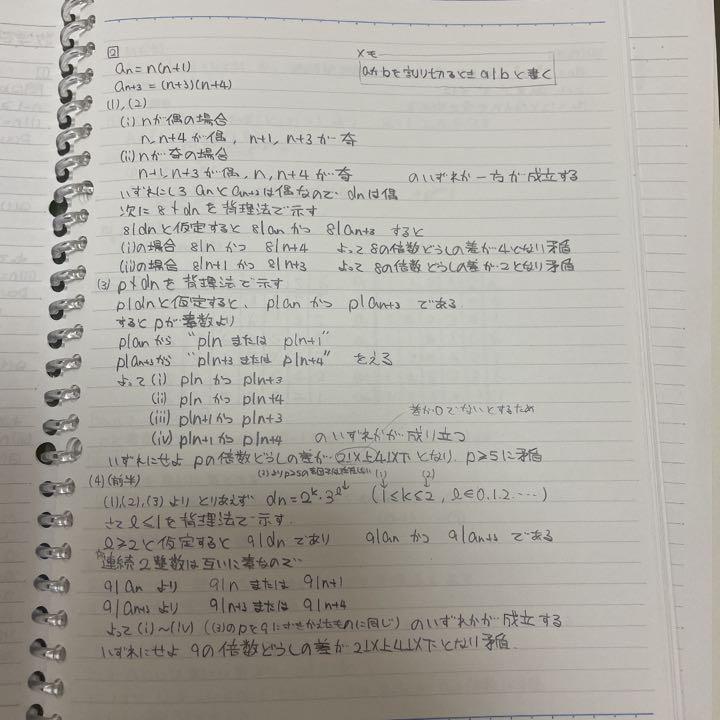 2
メモ
aがbを割り切るときa|bと書く
an = n(n+1)
an+3 = (n+3)(n+4)
(1),(2)
(i) nが偶の場合
n, n+4が偶, n+1, n+3が奇
(ii) nが奇の場合
n+1, n+3が偶, n, n+4が奇 のいずれか一方が成立する
いずれにしろ anとan+3は偶なので dnは偶
次に 8∤dnを背理法で示す
8|dnと仮定すると 8|anかつ 8|an+3 すると
(i)の場合 8|n かつ 8|n+4 よって8の倍数どうしの差が4となり矛盾
(ii)の場合 8|n+1 かつ 8|n+3 よって8の倍数どうしの差が2となり矛盾
(3) p∤dnを背理法で示す
p|dnと仮定すると、p|anかつ p|an+3 である
するとpが素数より
p|anから "p|n または p|n+1"
p|an+3から "p|n+3 または p|n+4" をえる
よって(i) p|n かつ p|n+3
(ii) p|n かつ p|n+4
(iii) p|n+1 かつ p|n+3
差が0でないとするため
(iv) p|n+1 かつ p|n+4 のいずれかが成り立つ
いずれにせよ pの倍数どうしの差が2以上4以下となり, p≥5に矛盾
(4)(前半)
(1),(2),(3)より とりあえず dn=2^k・3^l (1≤k≤2, l∈0,1,2,…)
(1) (2)
さて l≤1を背理法で示す.
l≥2と仮定すると 9|dnであり 9|an かつ 9|an+3 である
連続2整数は互いに素なので
9|anより 9|n または 9|n+1
9|an+3より 9|n+3 または 9|n+4
よって(i)~(iv) ((3)のpを9にすきかえたものに同じ) のいずれかが成立する
いずれにせよ 9の倍数どうしの差が2以上4以下となり矛盾.